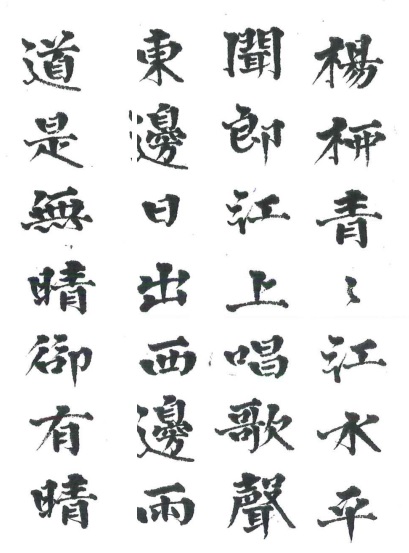 楊柳青〻江水平
聞郎江上唱歌聲
東邊日出西邊雨
道是無晴卻有晴